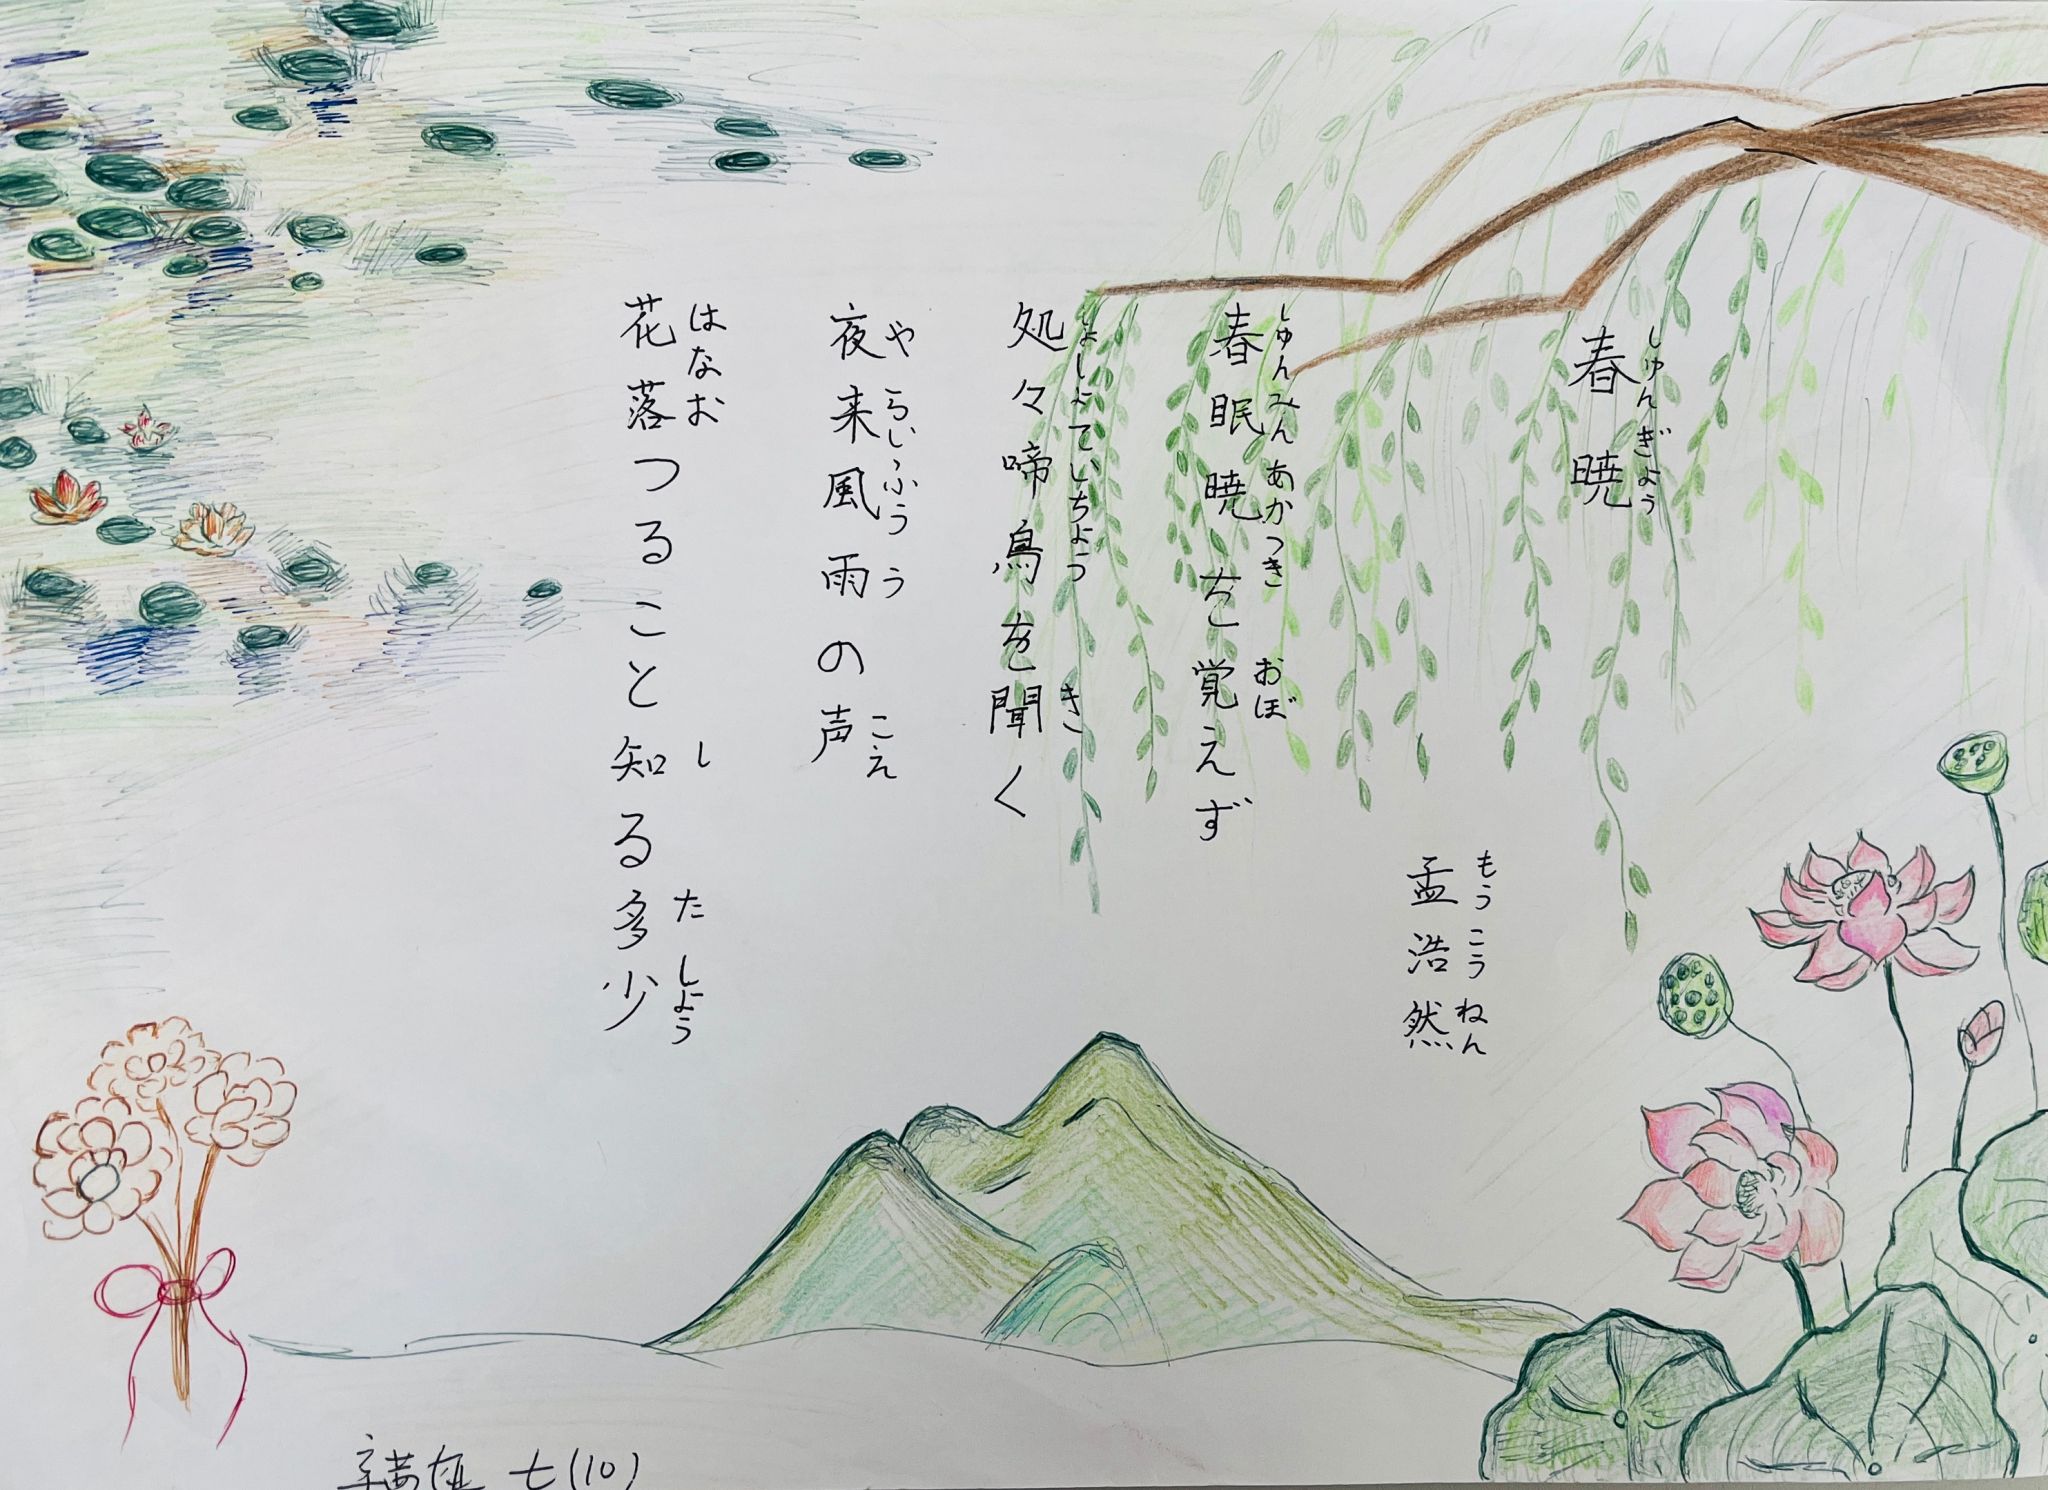 春暁
しゅんぎょう
孟浩然
もうこうねん
春眠暁を覚えず
しゅんみんあかつき おぼ
処々啼鳥を聞く
しょしょていちょう き
夜来風雨の声
やらいふうう こえ
花落つること知る多少
はなお し たしょう
七(10)